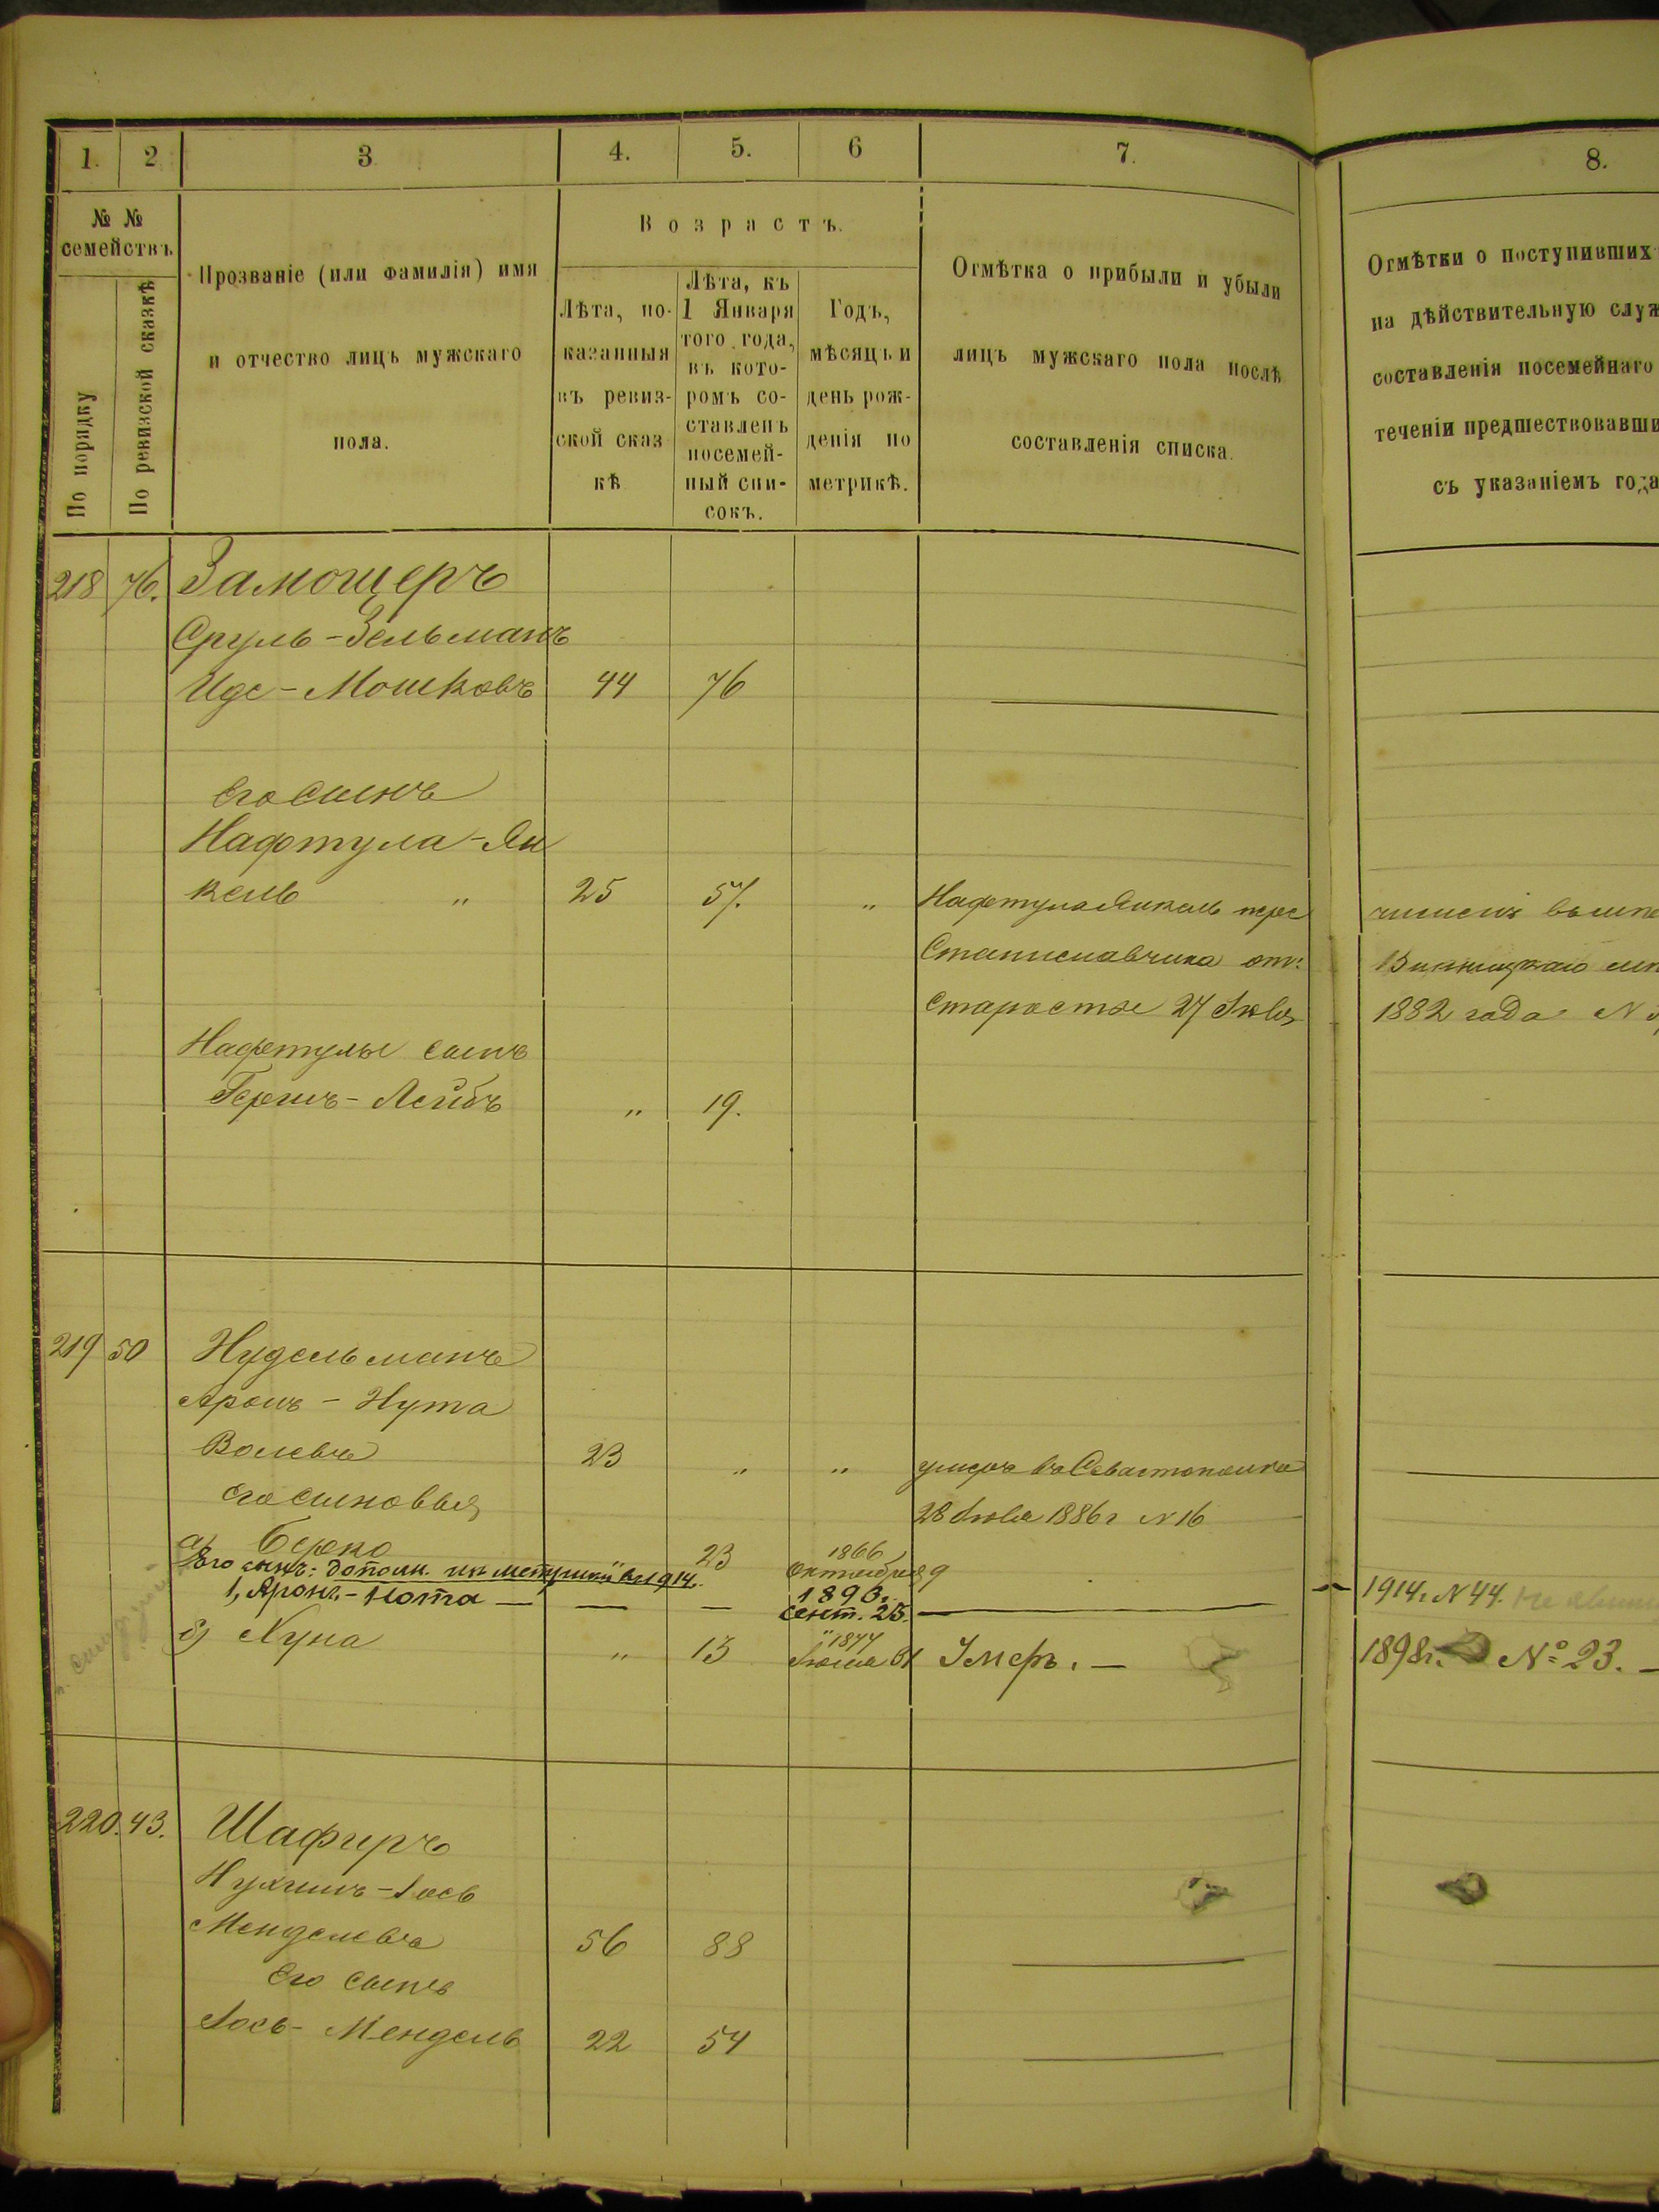 1. 2 3 4. 5. 6 7. 8.
№ №
семействъ
По порядку
По ревизской сказкѣ
Прозваніе (или фамилія) имя
и отчество лицъ мужскаго
пола.
Возрастъ.
Лѣта, по-
казанныя
въ ревиз-
ской сказ
кѣ
Лѣта, къ
1 Января
того года,
въ кото-
ромъ со-
ставленъ
посемей-
ный спи-
сокъ.
Годъ,
мѣсяцъ и
день рож-
денія по
метрикѣ.
Отмѣтка о прибыли и убыли
лицъ мужскаго пола послѣ
составленія списка.
Отмѣтки о поступившихъ
на дѣйствительную служ
составленія посемейнаго
теченіи предшествовавши
съ указаніемъ года
218 76. Замощеръ
Сруль-Зельманъ
Иде-Мошковъ 44 76
Его сынъ
Нафтула-Ян
кель „ 25 57. „ Нафтула Янкель пере численъ
Станиславчика от: Винницкаго
Старосты 27 1882 года N
Нафтулы сынъ
Гершъ-Лейбъ „ 19.
219 50 Нудельманъ
Аронъ-Нута
Волевъ 23 „ „ умеръ въ
Его сыновья 28 1886 г N 16
а) Берко 23 1866 Октября 9
Его сынъ: дополн. по метрикѣ въ 1914 г.
1, Аронъ-Нота — — — 1893 г. сент. 25. — 1914 г. N 44.
б) Хуна „ 13 1877 Умеръ. — 1898 г. № 23. —
220. 43. Шафиръ
Нухимъ-Іось
Менделевъ 56 88
Его сынъ
Іось-Мендель 22 54